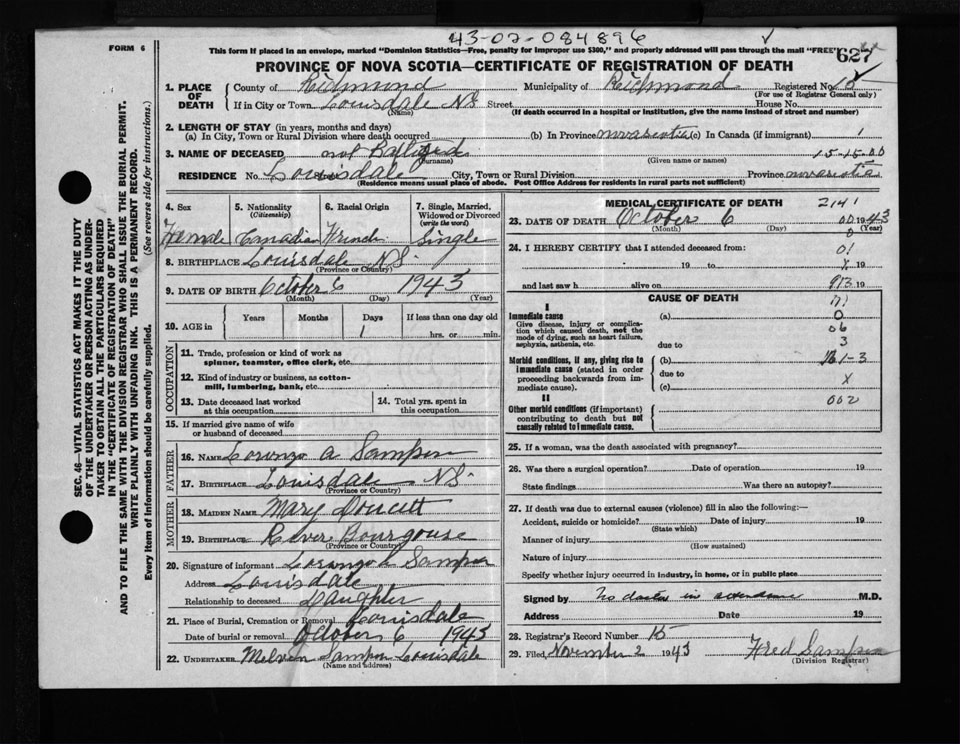 43-02-084896
FORM 6
This form if placed in an envelope, marked "Dominion Statistics—Free, penalty for improper use $300," and properly addressed will pass through the mail "FREE"
627
PROVINCE OF NOVA SCOTIA—CERTIFICATE OF REGISTRATION OF DEATH
1. PLACE OF DEATH
County of Richmond Municipality of Richmond Registered No. 15
(For use of Registrar General only)
If in City or Town Louisdale N.S. Street House No.
(Name) (If death occurred in a hospital or institution, give the name instead of street and number)
2. LENGTH OF STAY (in years, months and days)
(a) In City, Town or Rural Division where death occurred (b) In Province novascotia (c) In Canada (if immigrant) 1
3. NAME OF DECEASED not
(Surname) (Given name or names) 15-15-00
RESIDENCE No. Louisdale City, Town or Rural Division Province novascotia
(Residence means usual place of abode. Post Office Address for residents in rural parts not sufficient)
SEC. 46—VITAL STATISTICS ACT MAKES IT THE DUTY
OF THE UNDERTAKER OR PERSON ACTING AS UNDER-
TAKER TO OBTAIN ALL THE PARTICULARS REQUIRED
IN THE "CERTIFICATE OF REGISTRATION OF DEATH"
AND TO FILE THE SAME WITH THE DIVISION REGISTRAR WHO SHALL ISSUE THE BURIAL PERMIT.
WRITE PLAINLY WITH UNFADING INK. THIS IS A PERMANENT RECORD.
Every item of information should be carefully supplied. (See reverse side for instructions.)
4. Sex 5. Nationality (Citizenship) 6. Racial Origin 7. Single, Married, Widowed or Divorced (write the word)
Female Canadian Single
8. BIRTHPLACE Louisdale N.S.
(Province or Country)
9. DATE OF BIRTH October 6 1943
(Month) (Day) (Year)
10. AGE in Years Months Days If less than one day old
1 hrs. or min.
OCCUPATION
11. Trade, profession or kind of work as
spinner, teamster, office clerk, etc.
12. Kind of industry or business, as cotton-
mill, lumbering, bank, etc.
13. Date deceased last worked
at this occupation
14. Total yrs. spent in
this occupation
15. If married give name of wife
or husband of deceased
FATHER
16. NAME Lorenzo A Sampson
17. BIRTHPLACE Louisdale N.S.
(Province or Country)
MOTHER
18. MAIDEN NAME Mary Doucett
19. BIRTHPLACE River Bourgouse
(Province or Country)
20. Signature of informant Lorenzo A Sampson
Address Louisdale
Relationship to deceased daughter
21. Place of Burial, Cremation or Removal Louisdale
Date of burial or removal October 6 1943
22. UNDERTAKER Melvin Sampson Louisdale
(Name and address)
MEDICAL CERTIFICATE OF DEATH 2141
23. DATE OF DEATH October 6 1943
(Month) (Day) (Year)
24. I HEREBY CERTIFY that I attended deceased from:
01
19 to 19
and last saw h alive on 19
CAUSE OF DEATH
I
Immediate cause
Give disease, injury or complica-
tion which caused death, not the
mode of dying, such as heart failure,
asphyxia, asthenia, etc.
(a) 0
06
3
due to
Morbid conditions, if any, giving rise to
immediate cause (stated in order
proceeding backwards from im-
mediate cause).
(b)
due to
X
(c)
II
Other morbid conditions (if important)
contributing to death but not
causally related to immediate cause.
002
25. If a woman, was the death associated with pregnancy?
26. Was there a surgical operation? Date of operation 19
State findings Was there an autopsy?
27. If death was due to external causes (violence) fill in also the following:—
Accident, suicide or homicide? Date of injury 19
(State which)
Manner of injury
(How sustained)
Nature of injury
Specify whether injury occurred in industry, in home, or in public place
Signed by No doctor in attendance M.D.
Address Date 19
28. Registrar's Record Number 15
29. Filed November 2 1943 Fred Sampson
(Division Registrar)